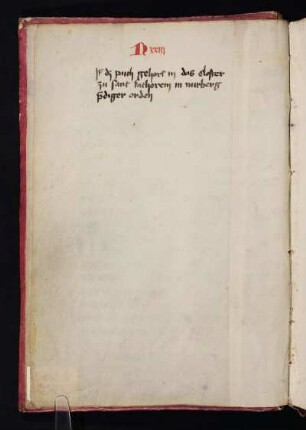 N xxiij
Jtē dz puch gehort in das closter
zu sant kathorein in nurberg
p̄diger orden